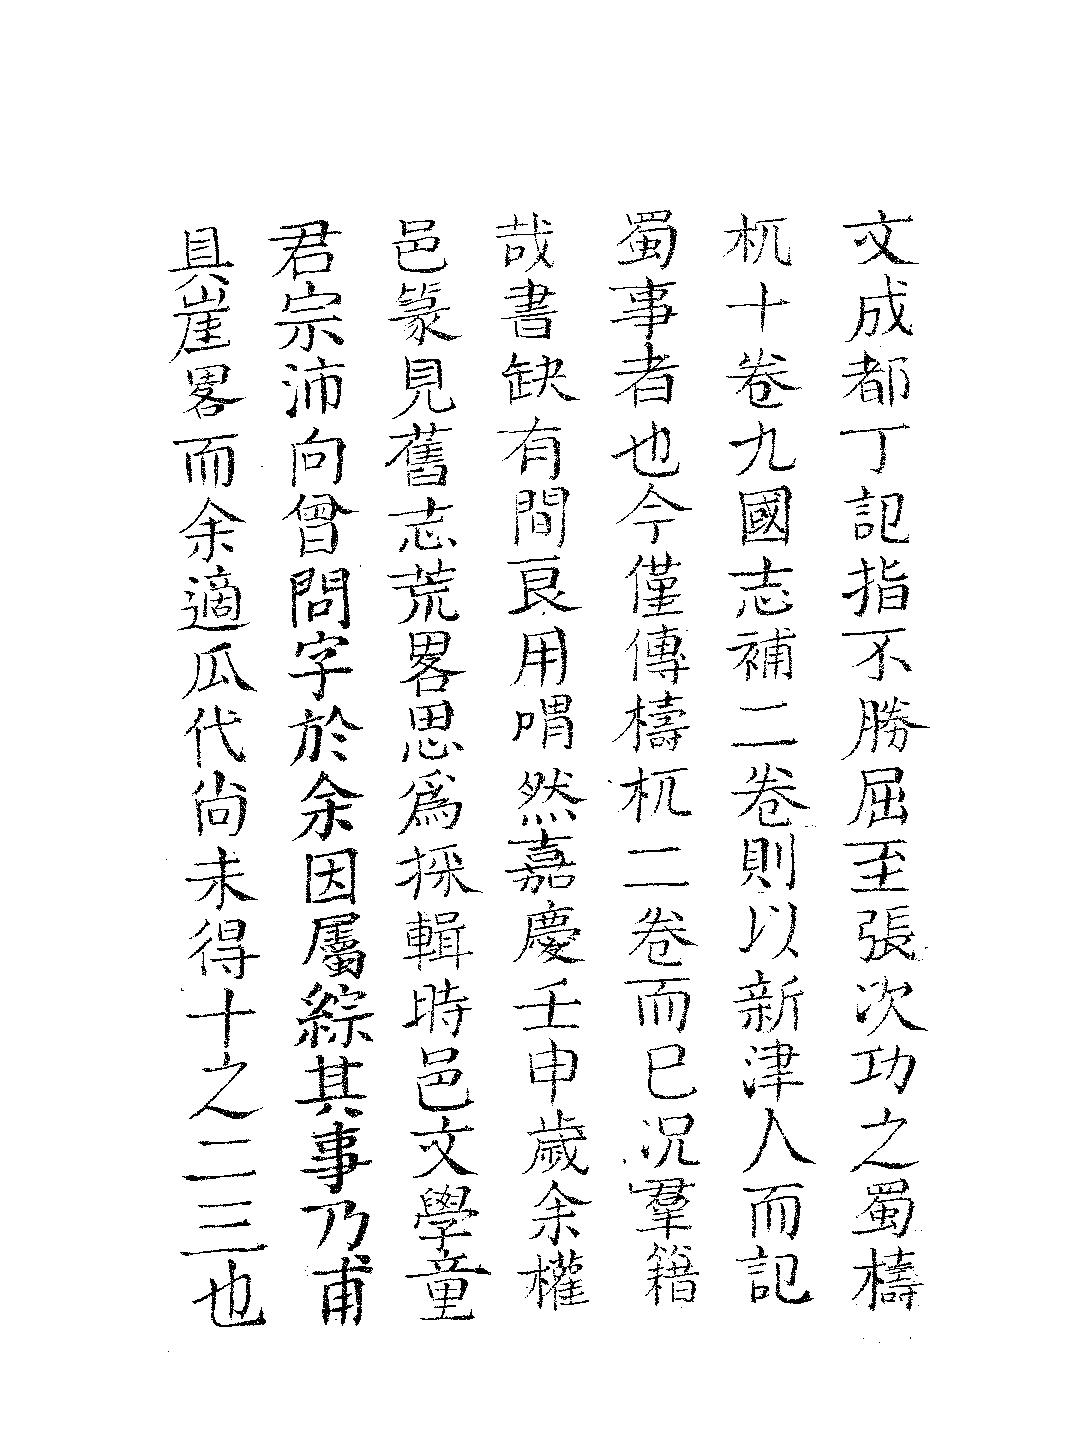 文成都丁記指不勝屈至張次功之蜀檮
杌十卷九國志補二卷則以新津人而記
蜀事者也今僅傳檮杌二卷而巳况羣籍
哉書缺有間良用喟然嘉慶壬申歲余權
邑篆見舊志荒畧思爲採輯時邑文學童
君宗沛向曾問字於余因屬綜其事乃甫
具崖畧而余適瓜代尚未得十之二三也